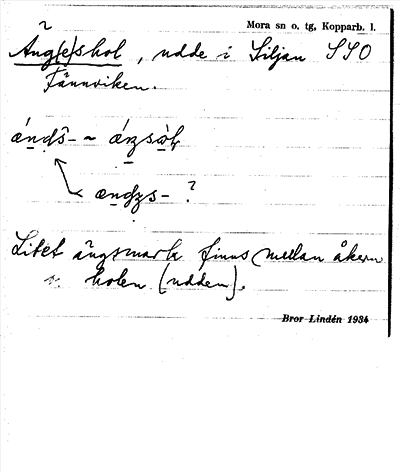 Mora sn o. tg, Kopparb. l.
Äng(e)shol, udde i Siljan SSO
Fännviken.
ä́ndš- ~ ä́zsòł
ændzs- ?
Litet ängsmark finns mellan åkern
o. holen (udden).
Bror Lindén 1934